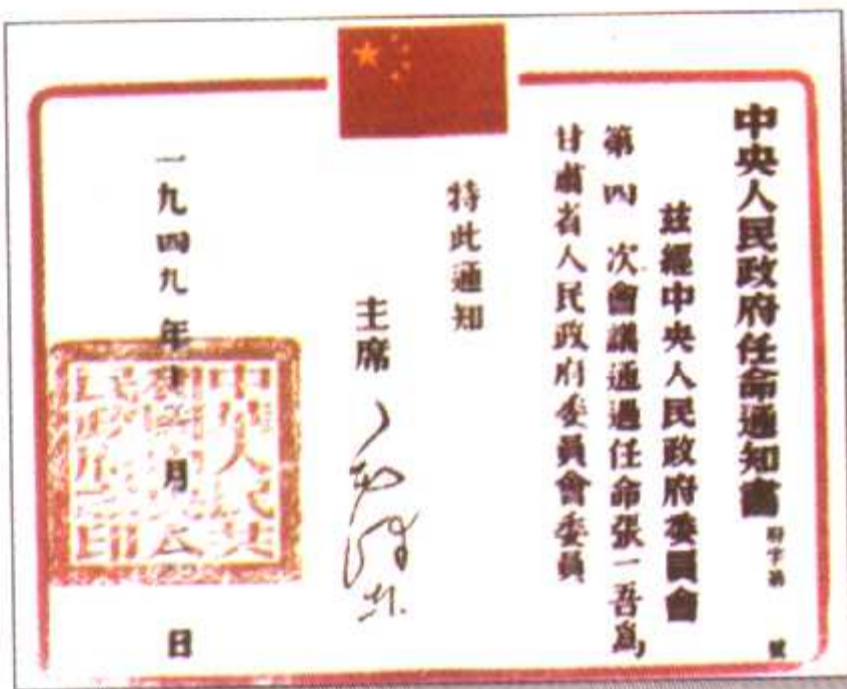 中央人民政府任命通知書
府字第 號
茲經中央人民政府委員會
第四次會議通過任命張一吾爲
甘肅省人民政府委員會委員
特此通知
主席 毛泽东
一九四九年十二月 日
中華人民共
和國中央人
民政府之印